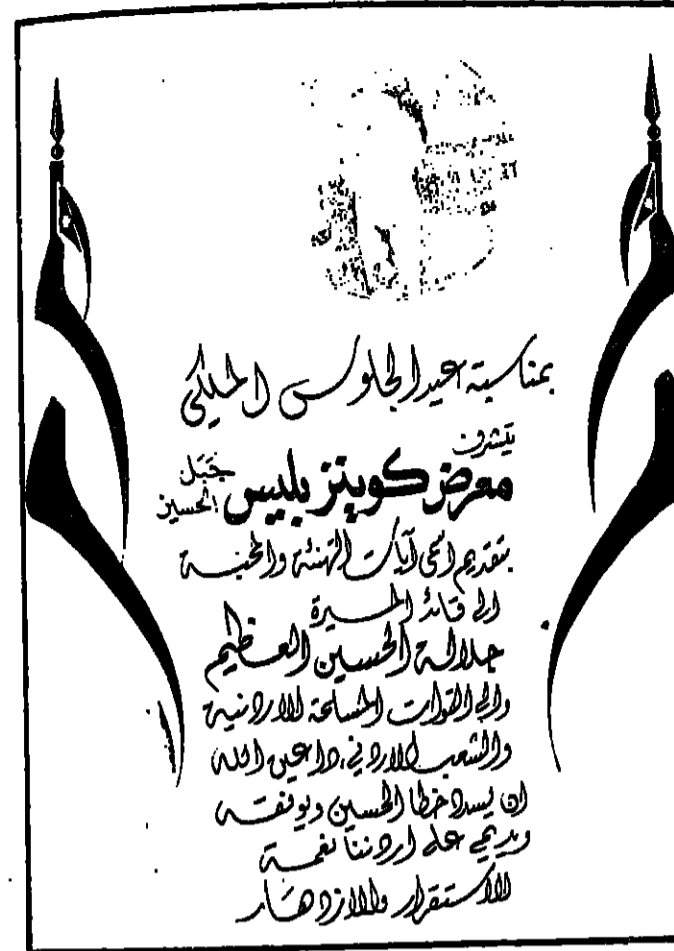 بمناسبة عيد الجلوس الملكي
يتشرف
معرض كوينز بليس جبل الحسين
بتقديم اسمى آيات التهنئة والمحبة
الى قائد المسيرة
جلالة الحسين العظيم
والى القوات المسلحة الاردنية
والشعب الاردني، داعين الله
ان يسدد خطا الحسين ويوفقه
ويديم على اردننا نعمة
الاستقرار والازدهار